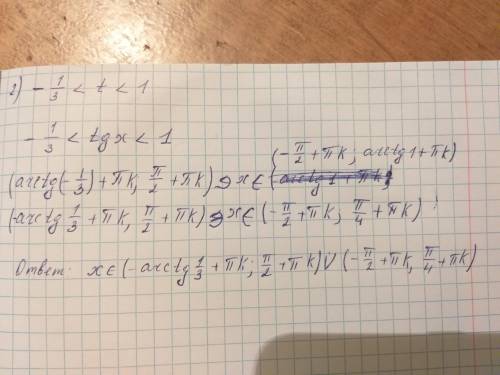 2) - 1/3 < t < 1
- 1/3 < tg x < 1
(arctg(-1/3) + πk, π/2 + πk) ∋ x ∈ (-π/2 + πk; arctg 1 + πk)
(arctg 1/3 + πk, π/2 + πk) ∋ x ∈ (-π/2 + πk, π/4 + πk)
Ответ: x ∈ (-arctg 1/3 + πk; π/2 + πk) V (-π/2 + πk, π/4 + πk)